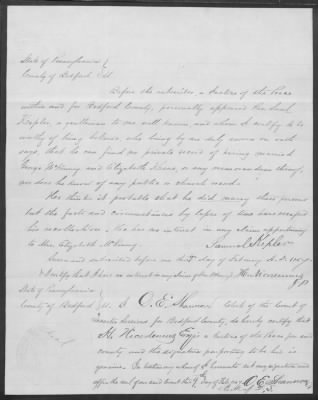 State of Pennsylvania
County of Bedford SS.
Before the subscriber a Justice of the Peace
within and for Bedford County, personally appeared Rev. Samuel
Kepler, a gentleman to me well known and whom I certify to be
worthy of being believed, who being by me duly sworn on oath
says, that he can find no private record of having married
George McKinney and Elizabeth or any memorandum thereof,
nor does he know of any public or church record.
He thinks it probable that he did marry these persons
but the facts and circumstances by lapse of time have escaped
his recollection. He has no interest in any claim appertaining
to Mrs. Elizabeth McKinney.
Samuel Kepler
Sworn and subscribed before me this day of February A.D.
I certify that I have no interest in any claim of Mrs. McKinney
J.P.
State of Pennsylvania
County of Bedford SS. I, O.E. Shannon Clerk of the Court of
Quarter Sessions for Bedford County, do hereby certify that
H. Nicodemus Esqr is a Justice of the Peace for said
county and the signature purporting to be his is
genuine. In testimony whereof I hereunto set my signature and
affix the seal of said court this 9th day of Feby O.E. Shannon